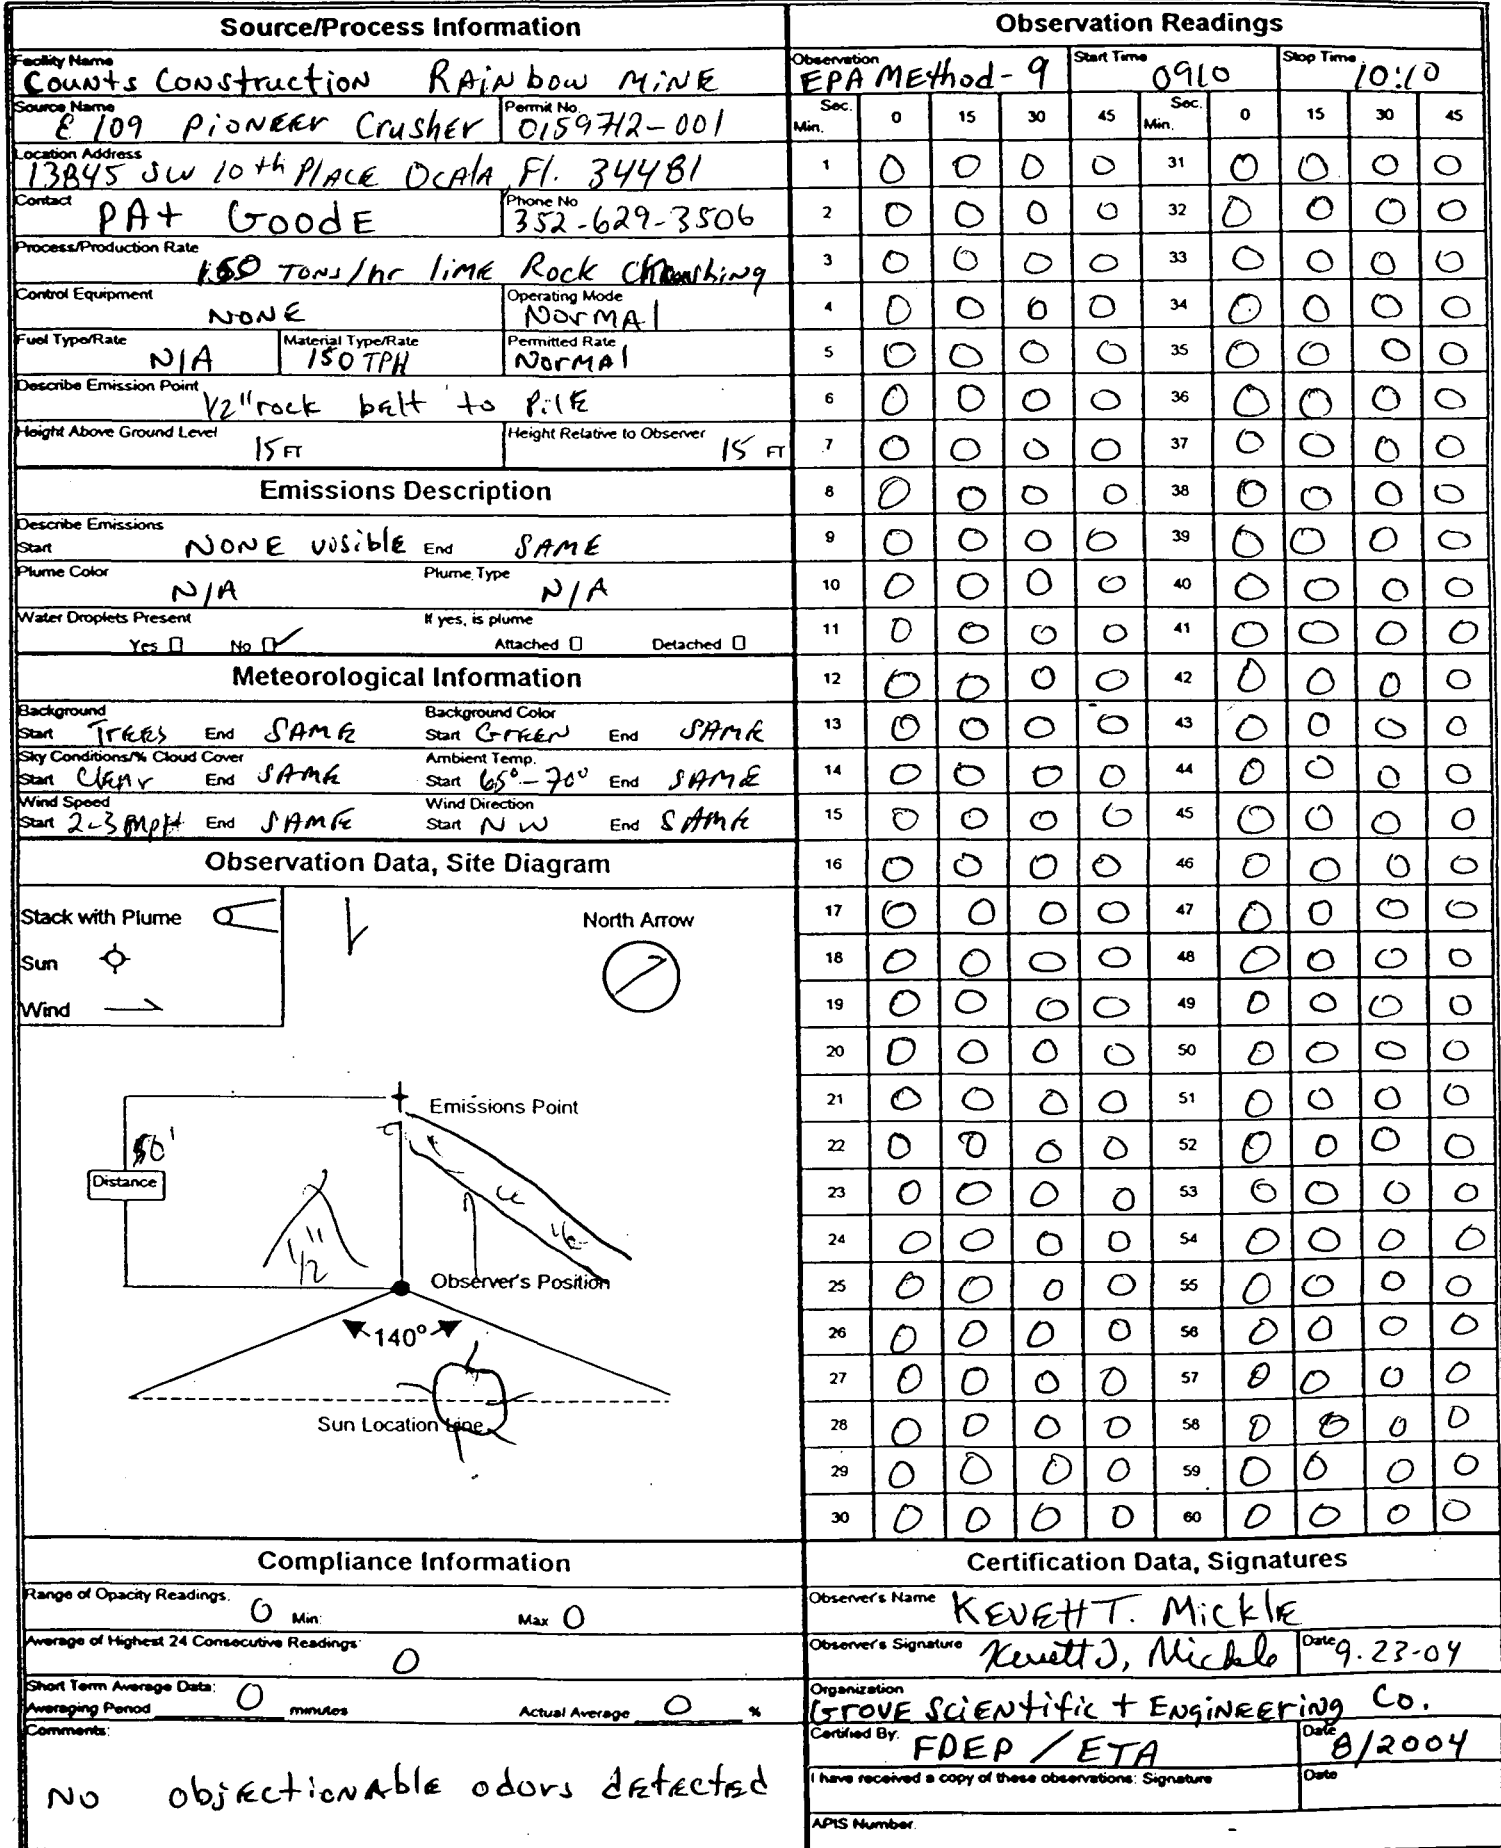 Source/Process Information
Facility Name
Counts Construction Rainbow Mine
Source Name
E 109 Pioneer Crusher
Permit No.
0159712-001
Location Address
13845 SW 10th Place Ocala, Fl. 34481
Contact
Pat Goode
Phone No
352-629-3506
Process/Production Rate
150 Tons/hr lime Rock Crushing
Control Equipment
NONE
Operating Mode
Normal
Fuel Type/Rate
N/A
Material Type/Rate
150 TPH
Permitted Rate
Normal
Describe Emission Point
1/2" rock belt to Pile
Height Above Ground Level
15 FT
Height Relative to Observer
15 FT
Emissions Description
Describe Emissions
Start NONE visible End SAME
Plume Color
N/A
Plume Type
N/A
Water Droplets Present
Yes No ✓
If yes, is plume
Attached Detached
Meteorological Information
Background
Start Trees End SAME
Background Color
Start Green End SAME
Sky Conditions/% Cloud Cover
Start Clear End SAME
Ambient Temp.
Start 65°-70° End SAME
Wind Speed
Start 2-3 mpH End SAME
Wind Direction
Start NW End SAME
Observation Data, Site Diagram
Stack with Plume
Sun
Wind
North Arrow
Emissions Point
50'
Distance
1/2"
Observer's Position
140°
Sun Location Line
Compliance Information
Range of Opacity Readings.
0 Min: Max 0
Average of Highest 24 Consecutive Readings:
0
Short Term Average Data:
Averaging Period 0 minutes Actual Average 0 %
Comments:
No objectionable odors detected
Observation Readings
Observation
EPA Method-9
Start Time
0910
Stop Time
10:10
Sec. 0 15 30 45 Sec. 0 15 30 45
Min. Min.
1 0 0 0 0 31 0 0 0 0
2 0 0 0 0 32 0 0 0 0
3 0 0 0 0 33 0 0 0 0
4 0 0 0 0 34 0 0 0 0
5 0 0 0 0 35 0 0 0 0
6 0 0 0 0 36 0 0 0 0
7 0 0 0 0 37 0 0 0 0
8 0 0 0 0 38 0 0 0 0
9 0 0 0 0 39 0 0 0 0
10 0 0 0 0 40 0 0 0 0
11 0 0 0 0 41 0 0 0 0
12 0 0 0 0 42 0 0 0 0
13 0 0 0 0 43 0 0 0 0
14 0 0 0 0 44 0 0 0 0
15 0 0 0 0 45 0 0 0 0
16 0 0 0 0 46 0 0 0 0
17 0 0 0 0 47 0 0 0 0
18 0 0 0 0 48 0 0 0 0
19 0 0 0 0 49 0 0 0 0
20 0 0 0 0 50 0 0 0 0
21 0 0 0 0 51 0 0 0 0
22 0 0 0 0 52 0 0 0 0
23 0 0 0 0 53 0 0 0 0
24 0 0 0 0 54 0 0 0 0
25 0 0 0 0 55 0 0 0 0
26 0 0 0 0 56 0 0 0 0
27 0 0 0 0 57 0 0 0 0
28 0 0 0 0 58 0 0 0 0
29 0 0 0 0 59 0 0 0 0
30 0 0 0 0 60 0 0 0 0
Certification Data, Signatures
Observer's Name
Kevett T. Mickle
Observer's Signature
Kevett T. Mickle
Date
9.23-04
Organization
Grove Scientific + Engineering Co.
Certified By:
FDEP / ETA
Date
8/2004
I have received a copy of these observations: Signature
Date
APIS Number.